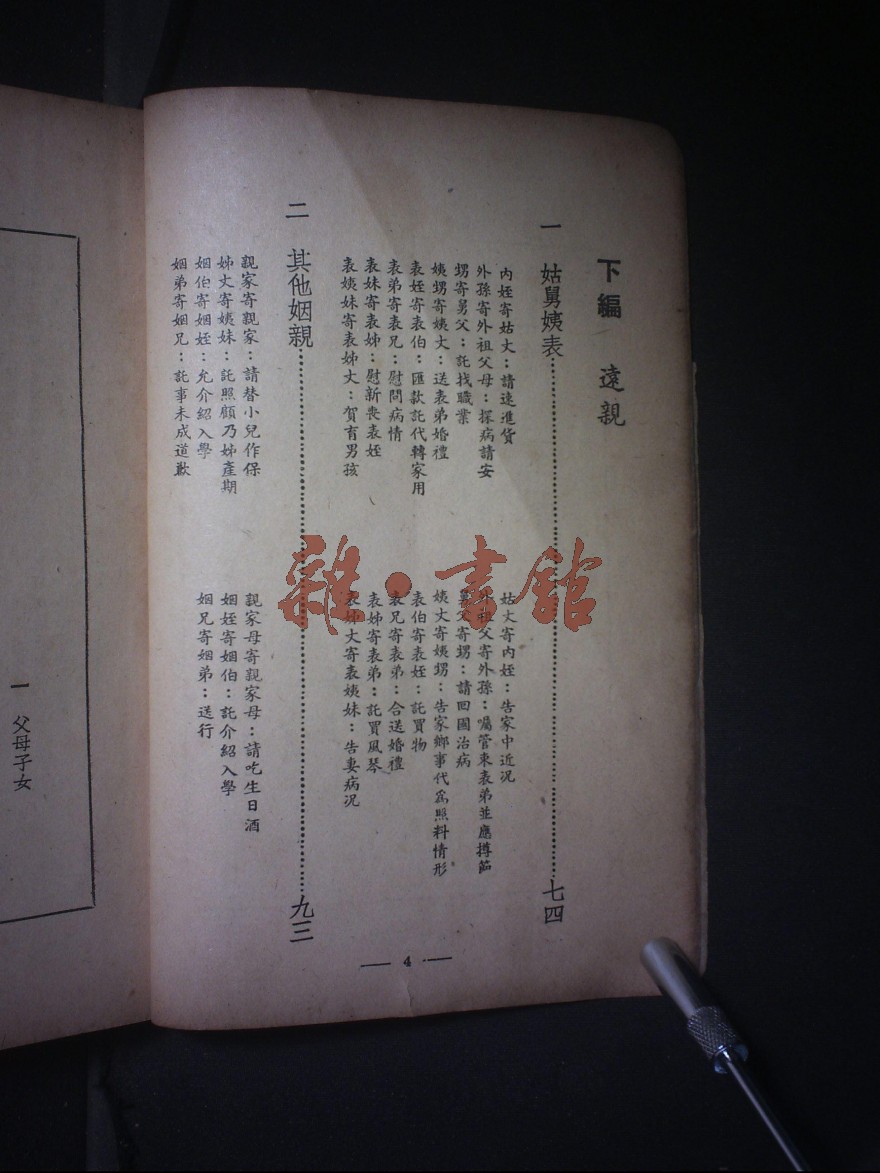 下編 遠親
一 姑舅姨表……七四
內姪寄姑丈：請速進貨
姑丈寄內姪：告家中近況
外孫寄外祖父母：探病請安
外祖父寄外孫：囑管束表弟並應撙節
甥寄舅父：託找職業
舅父寄甥：請回國治病
姨甥寄姨丈：送表弟婚禮
姨丈寄姨甥：告家鄉事代為照料情形
表姪寄表伯：匯款託代轉家用
表伯寄表姪：託買物
表弟寄表兄：慰問病情
表兄寄表弟：合送婚禮
表妹寄表姊：慰新喪表姪
表姊寄表弟：託買風琴
表姨妹寄表姊丈：賀育男孩
表姊丈寄表姨妹：告妻病況
二 其他姻親……九三
親家寄親家：請替小兒作保
親家母寄親家母：請吃生日酒
姊丈寄姨妹：託照顧乃姊產期
姻姪寄姻伯：託介紹入學
姻伯寄姻姪：允介紹入學
姻兄寄姻弟：送行
姻弟寄姻兄：託事未成道歉
4
一 父母子女
雜·書館